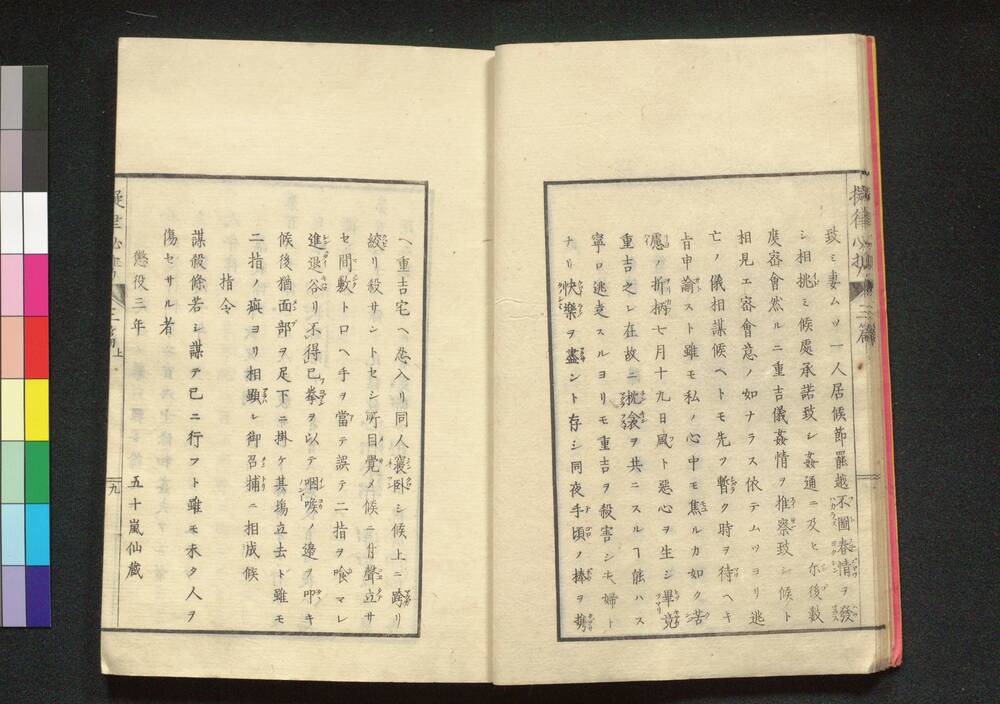 致ミ妻ムツ一人居候節罷越不圖春情ヲ發
シ相挑ミ候處承諾致シ姦通ニ及ヒ尓後数
度密會然ルニ重吉儀姦情ヲ推察致シ候ト
相見エ密會意ノ如ナラス依テムツヨリ逃
亡ノ儀相謀候ヘトモ先ツ暫ク時ヲ待ヘキ
旨申諭スト雖モ私ノ心中モ焦ルカ如ク苦
慮ノ折柄七月十九日風ト惡心ヲ生シ畢竟
重吉之レ在故ニ枕衾ヲ共ニスルヿ能ハス
寧ロ逃走スルヨリモ重吉ヲ殺害シ夫婦ト
ナリ快樂ヲ盡ント存シ同夜手頃ノ棒ヲ携
ヘ重吉宅ヘ忍入リ同人寢臥シ候上ニ跨リ
絞リ殺サントセシ所目覺メ候ニ付聲立サ
セ間敷トロヘ手ヲ當テ誤テ二指ヲ喰マレ
進退谷リ不得已拳ヲ以テ咽喉ノ邊ヲ叩キ
候後猶面部ヲ足下ニ掛ケ其塲立去ト雖モ
二指ノ痍ヨリ相顕レ御召捕ニ相成候
指令
謀殺條若シ謀テ已ニ行フト雖モ未タ人ヲ
傷セサル者
懲役三年
五十嵐仙藏
九